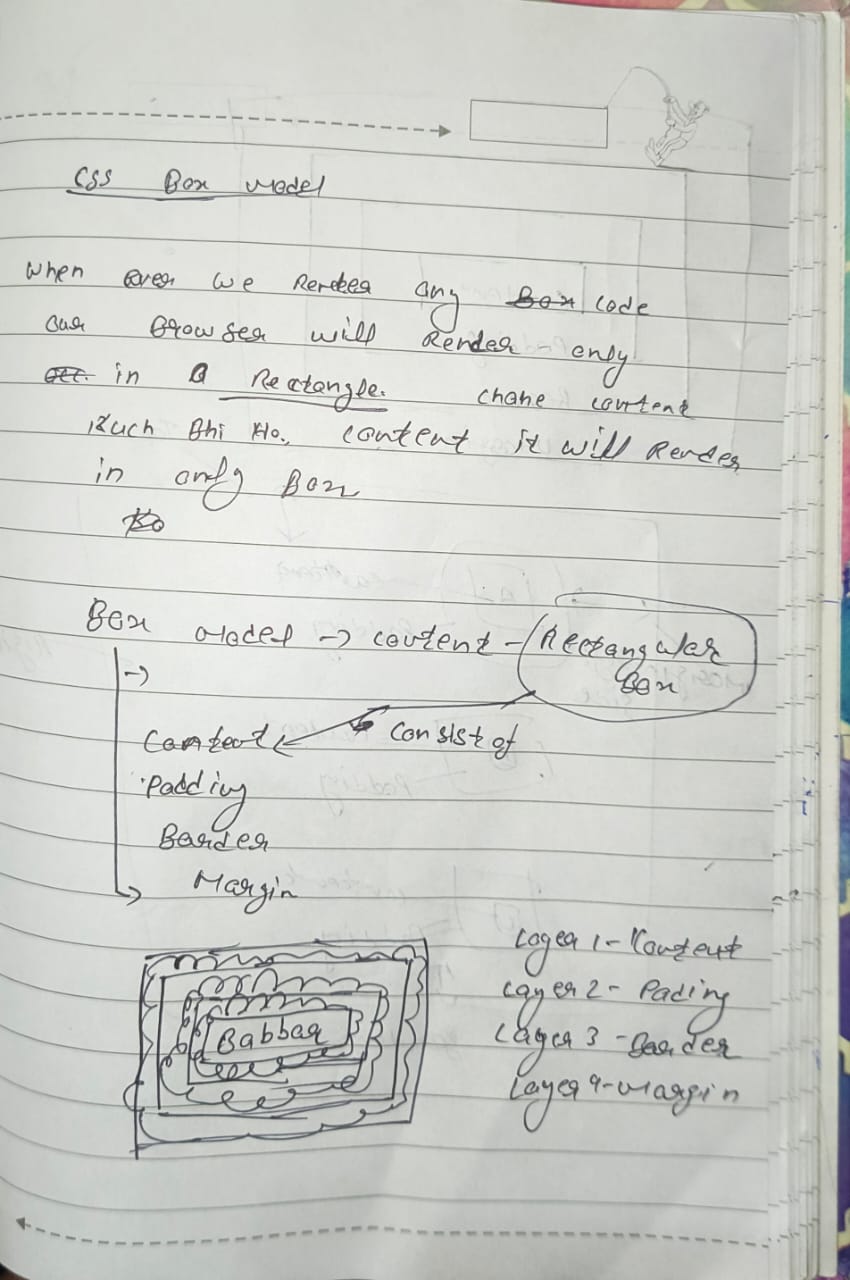 CSS Box Model
When ever we Render any Box code
our Browser will Render only
in a Rectangle. chahe content
Kuch Bhi Ho, content it will Render
in only Box
Box Model → content - Rectangular
Box
→
Content ← consist of
Padding
Border
Margin
Babbar
Layer 1 - Content
Layer 2 - Pading
Layer 3 - Border
Layer 4 - Margin